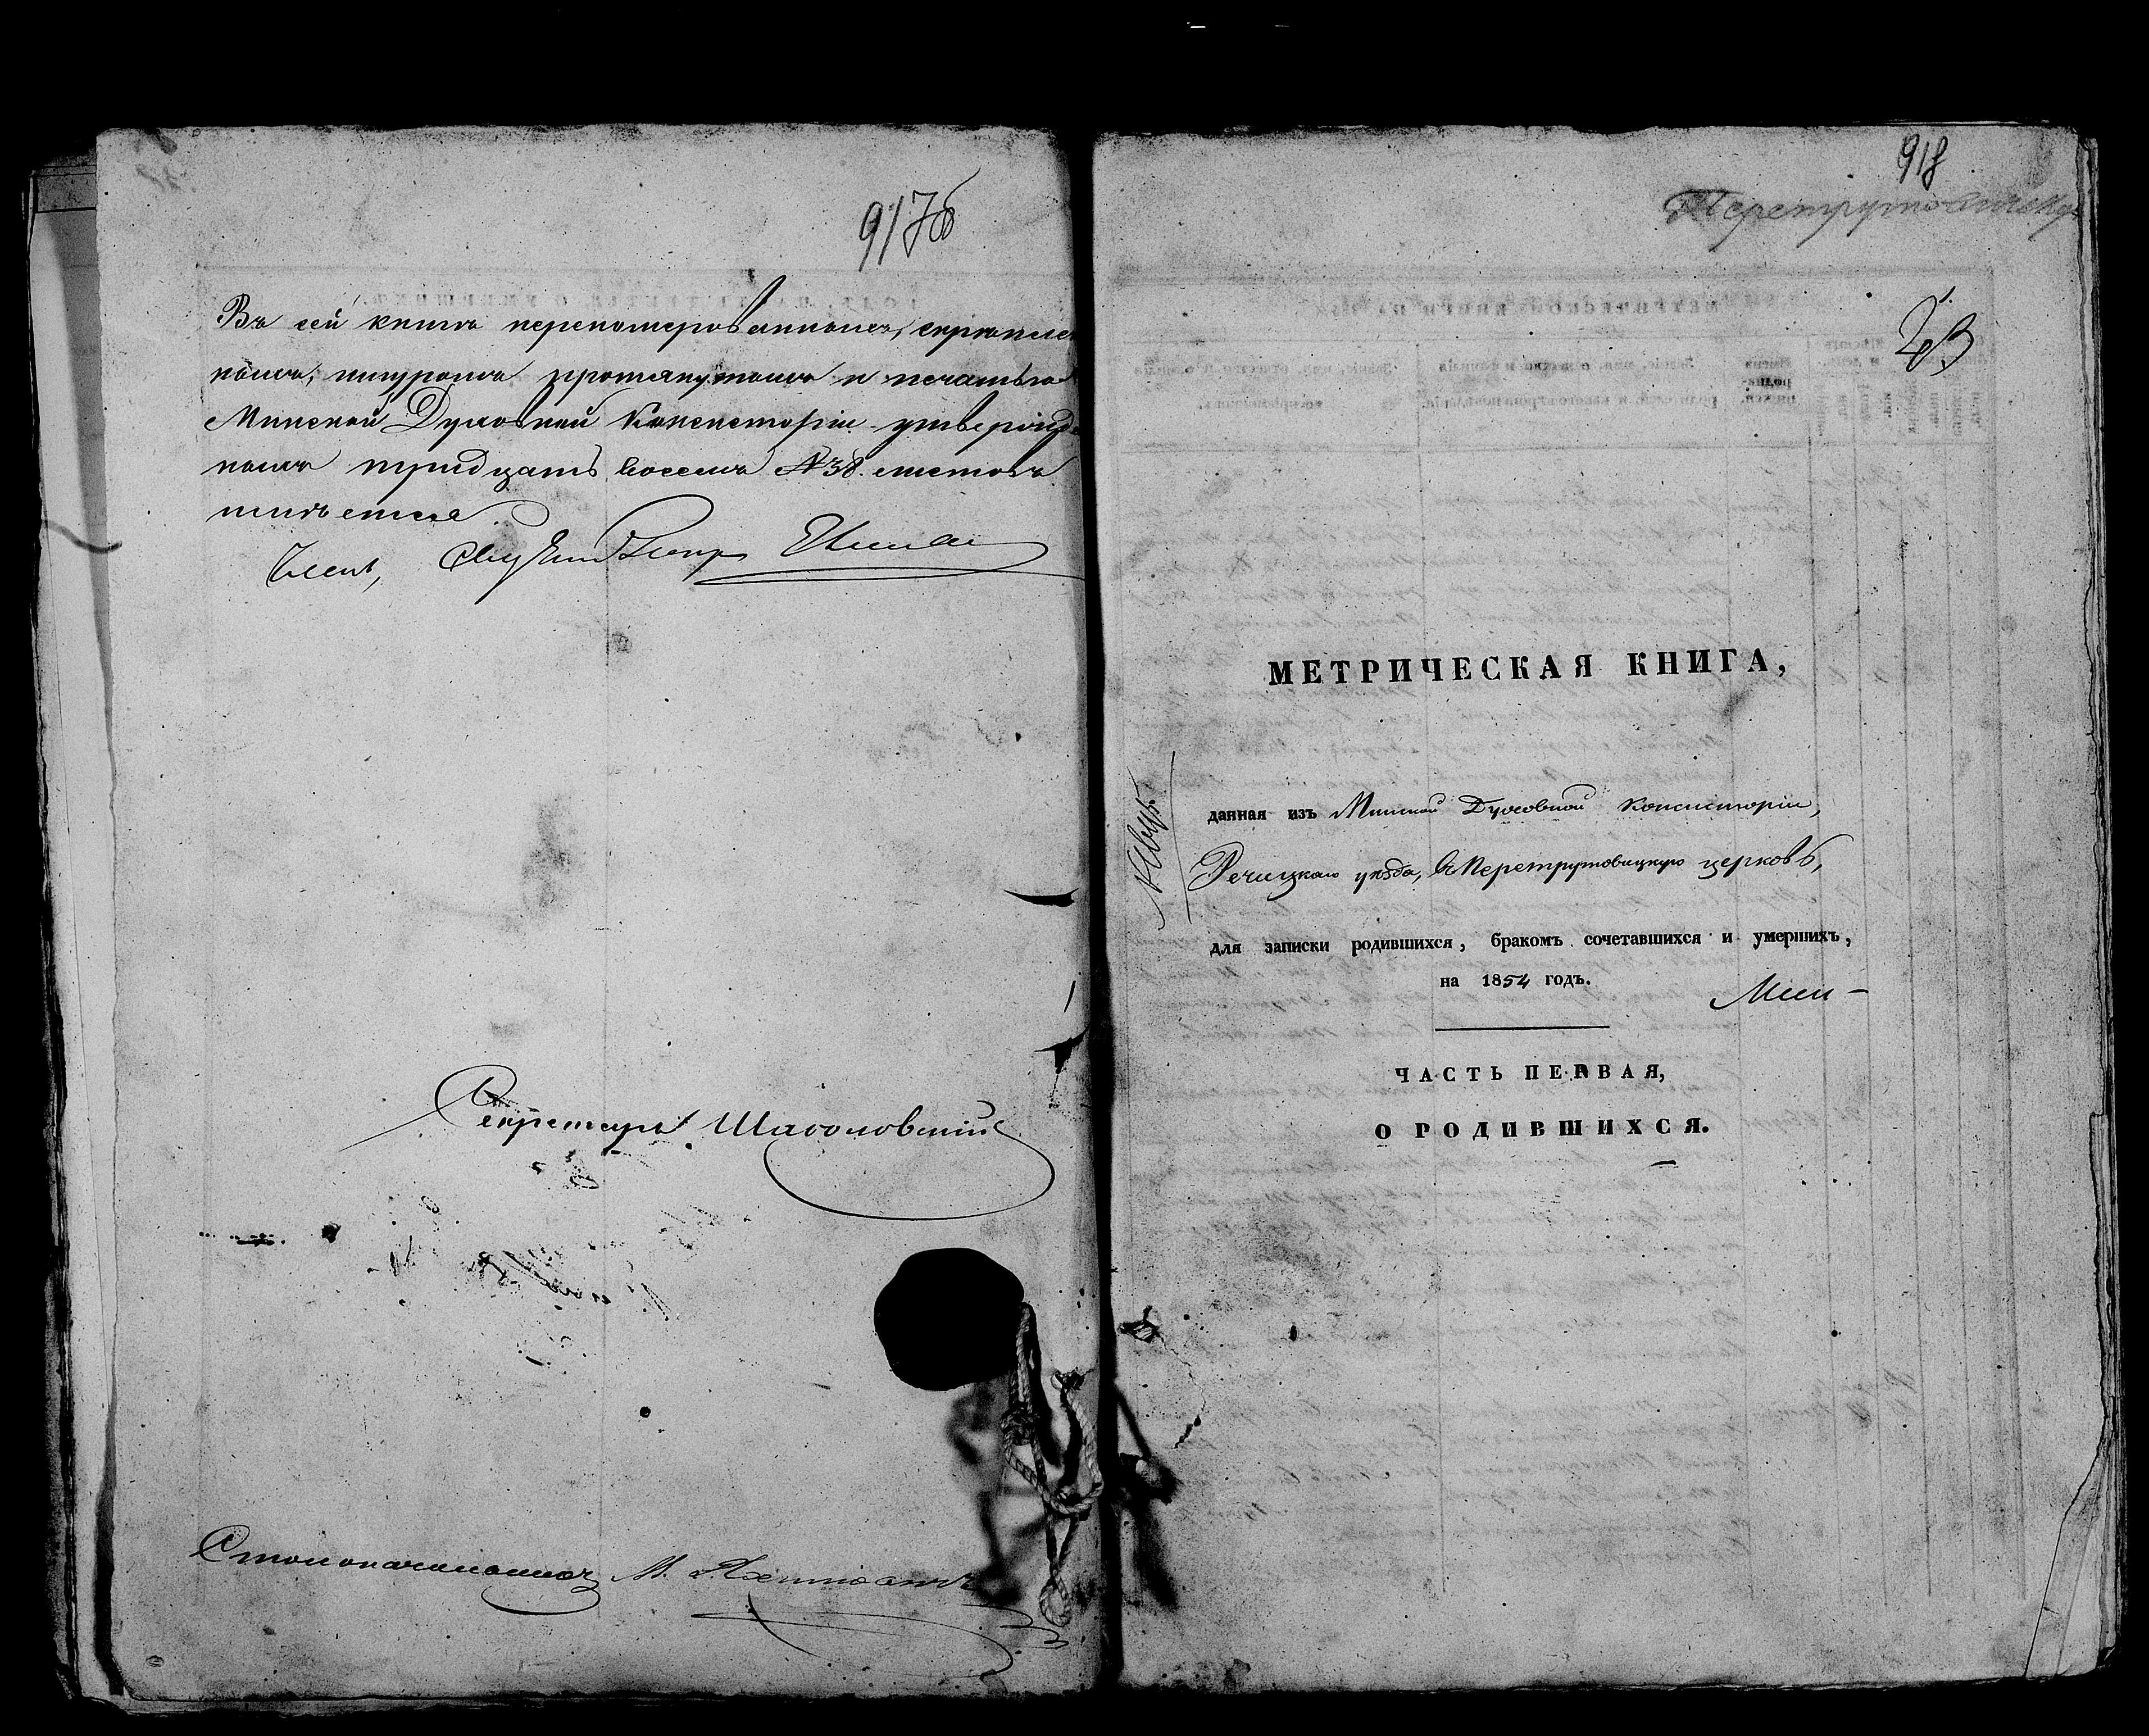 917б
Въ сей книгѣ перенумерованныхъ, скрѣплен
ныхъ, шнуромъ протянутыхъ и печатью
Минской Духовной Консисторіи утвержде
ныхъ тридцать восемь №38. листовъ
имѣется
Членъ,
Секретарь
Столоначальникъ М.
918
Перетрутовичску
МЕТРИЧЕСКАЯ КНИГА,
данная изъ Минской Духовной Консисторіи,
Речицкаго уѣзда, въ Перетрутовицкую церковь,
для записки родившихся, бракомъ сочетавшихся и умершихъ,
на 1854 годъ.
ЧАСТЬ ПЕРВАЯ,
О РОДИВШИХСЯ.